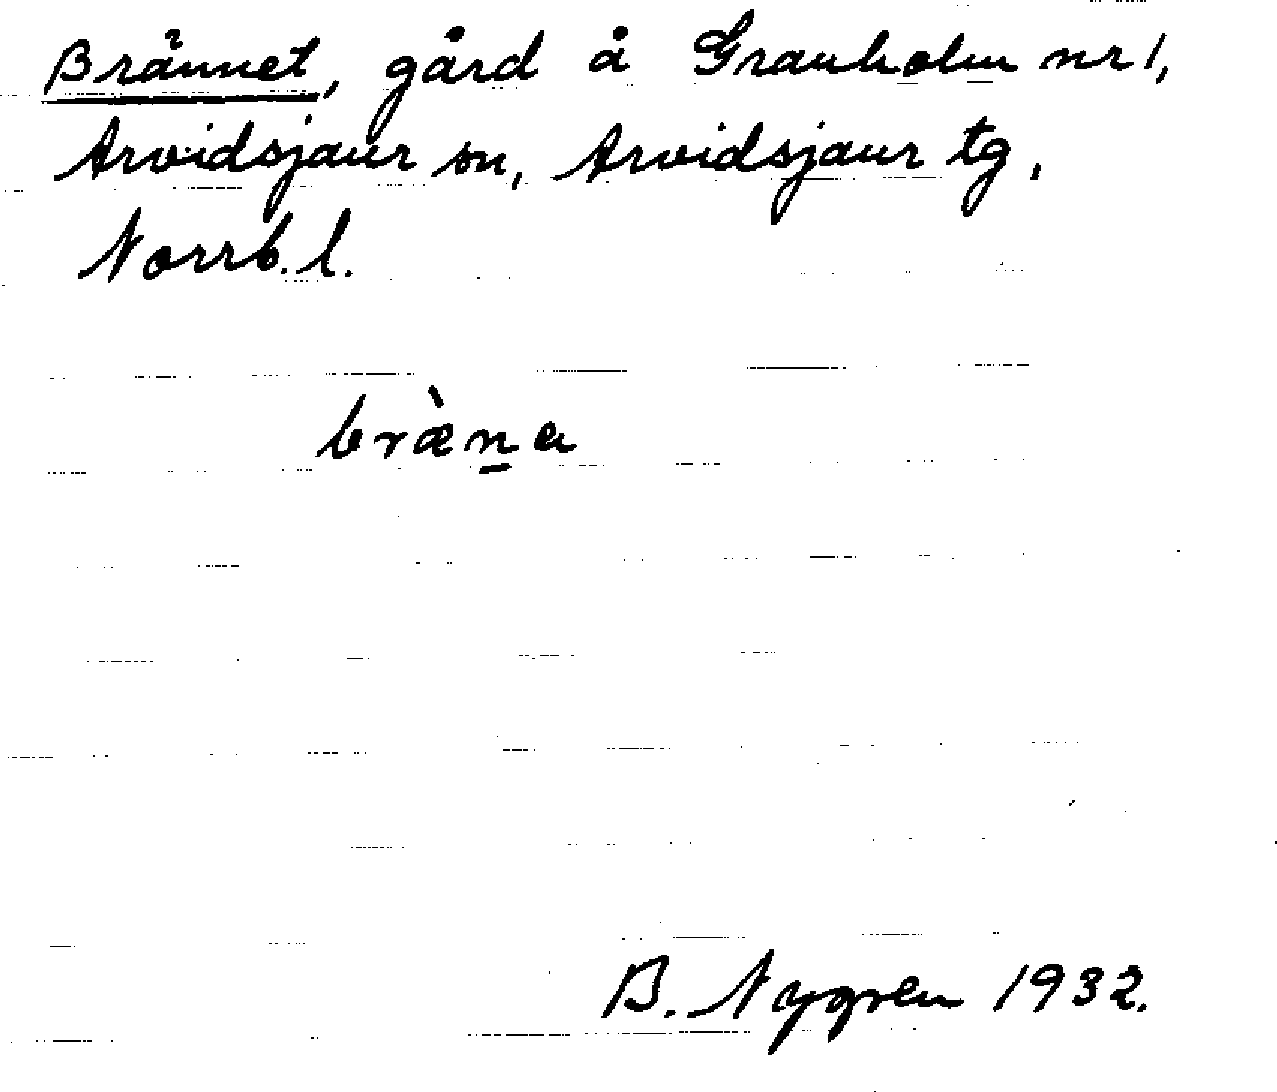 Brännet, gård å Granholm nr 1,
Arvidsjaur sn, Arvidsjaur tg,
Norrb. l.
bræ̀n̲a
B. Nygren 1932.